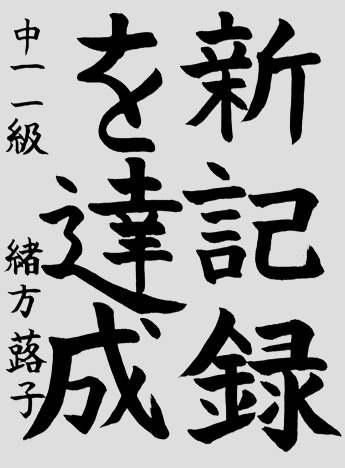 新記録
を達成
中一一級
緒方蕗子